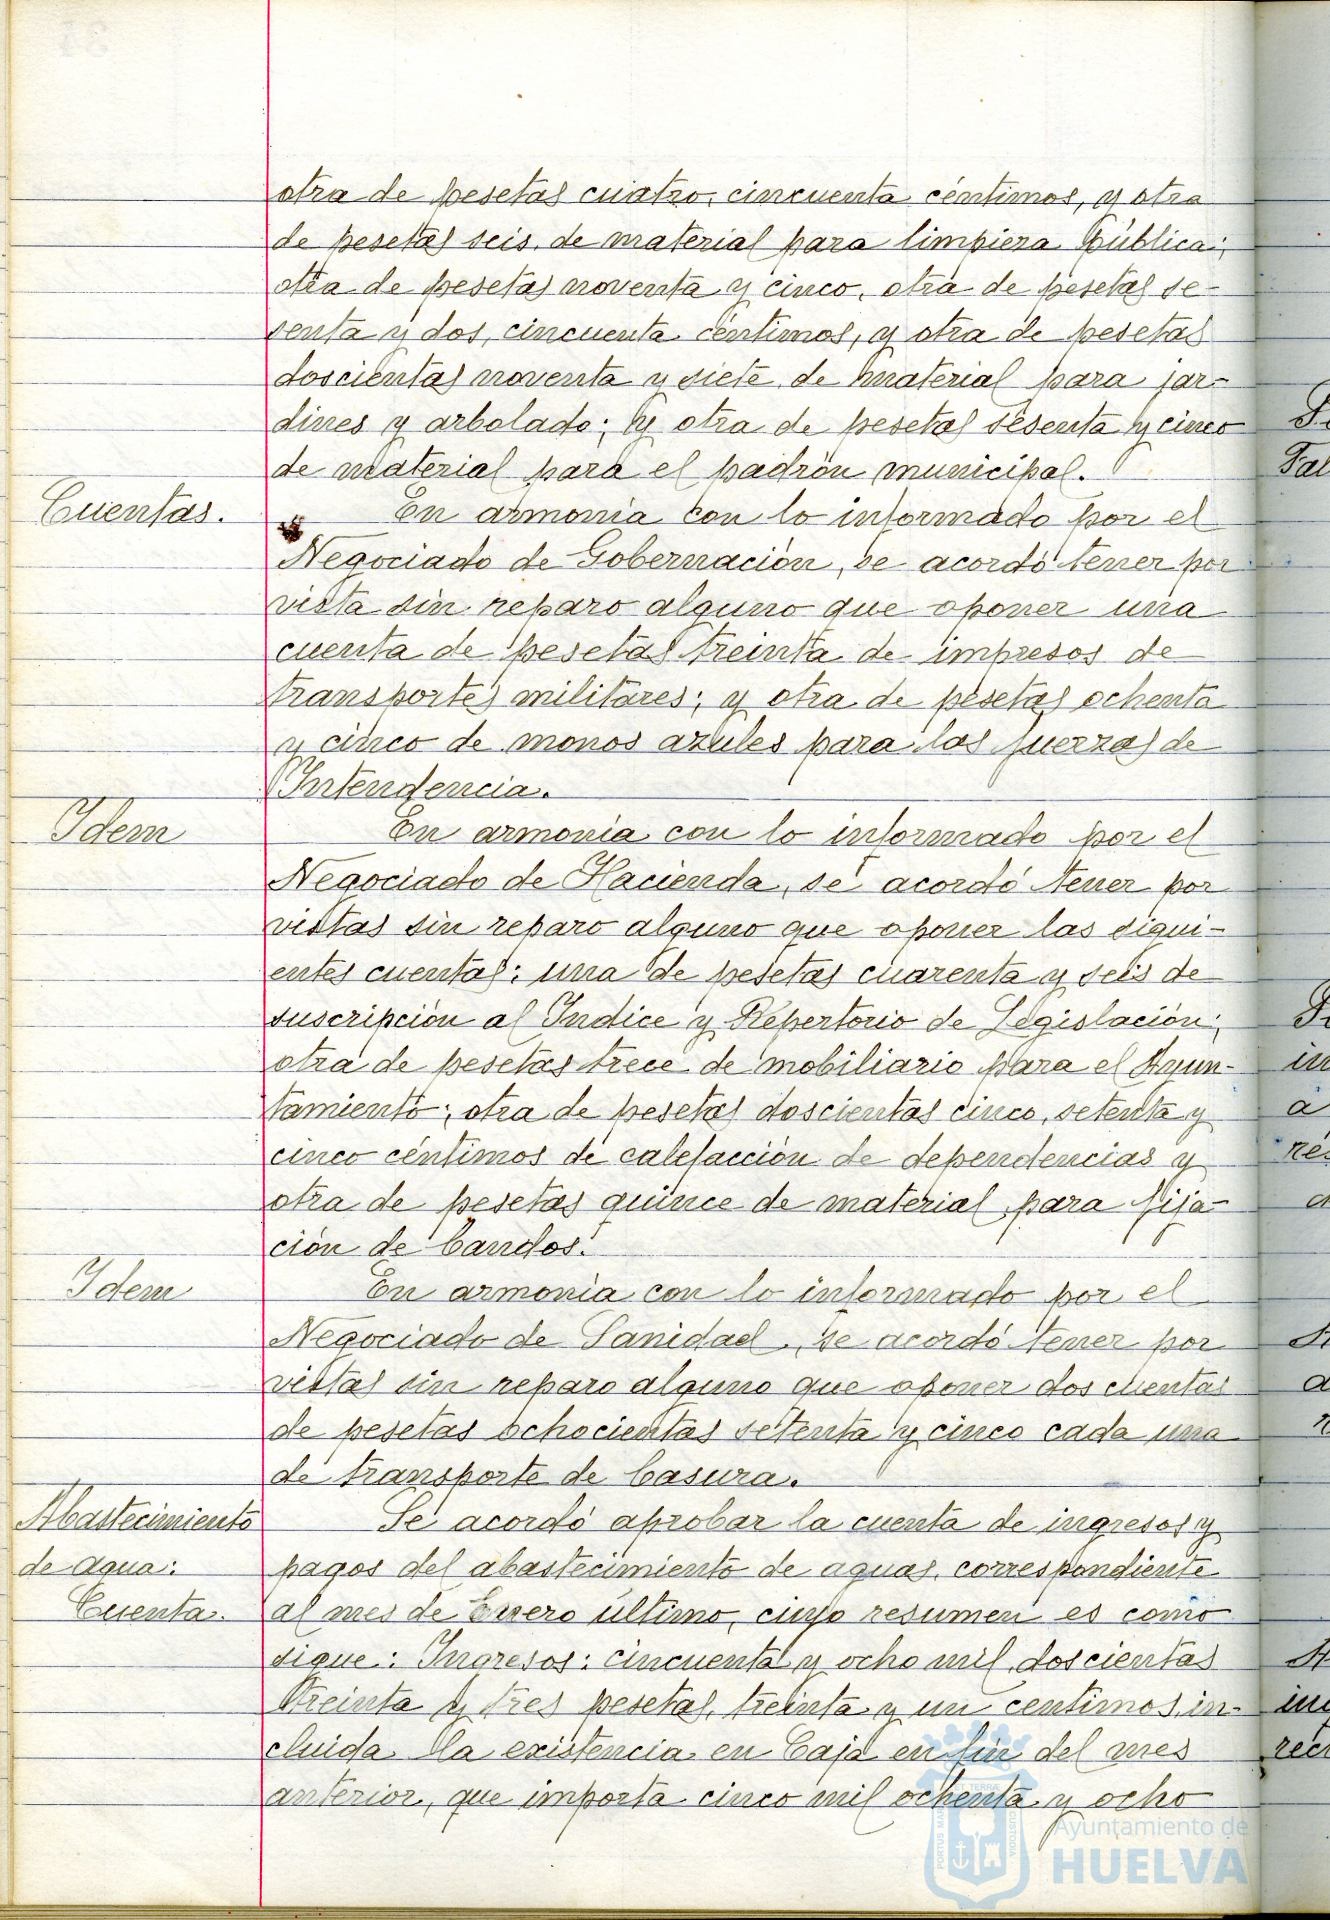 otra de pesetas cuatro, cincuenta céntimos, y otra
de pesetas seis, de material para limpieza pública;
otra de pesetas noventa y cinco, otra de pesetas se-
senta y dos, cincuenta céntimos, y otra de pesetas
doscientas noventa y siete, de material para jar-
dines y arbolado; y otra de pesetas sesenta y cinco
de material para el padrón municipal.
Cuentas.
En armonía con lo informado por el
Negociado de Gobernación, se acordó tener por
vista sin reparo alguno que oponer una
cuenta de pesetas treinta de impresos de
transportes militares; y otra de pesetas ochenta
y cinco de monos azules para las fuerzas de
Intendencia.
Idem
En armonía con lo informado por el
Negociado de Hacienda, se acordó tener por
vistas sin reparo alguno que oponer las sigui-
entes cuentas: una de pesetas cuarenta y seis de
suscripción al Indice y Repertorio de Legislación;
otra de pesetas trece de mobiliario para el Ayun-
tamiento; otra de pesetas doscientas cinco, setenta y
cinco céntimos de calefacción de dependencias y
otra de pesetas quince de material para fija-
ción de bandos.
Idem
En armonía con lo informado por el
Negociado de Sanidad, se acordó tener por
vistas sin reparo alguno que oponer dos cuentas
de pesetas ochocientas setenta y cinco cada una
de transporte de basura.
Abastecimiento
de agua:
Cuenta.
Se acordó aprobar la cuenta de ingresos y
pagos del abastecimiento de aguas, correspondiente
al mes de Enero último, cuyo resumen es como
sigue: Ingresos: cincuenta y ocho mil doscientas
treinta y tres pesetas, treinta y un centimos, in-
cluida la existencia en Caja en fin del mes
anterior, que importa cinco mil ochenta y ocho
Ayuntamiento de
HUELVA